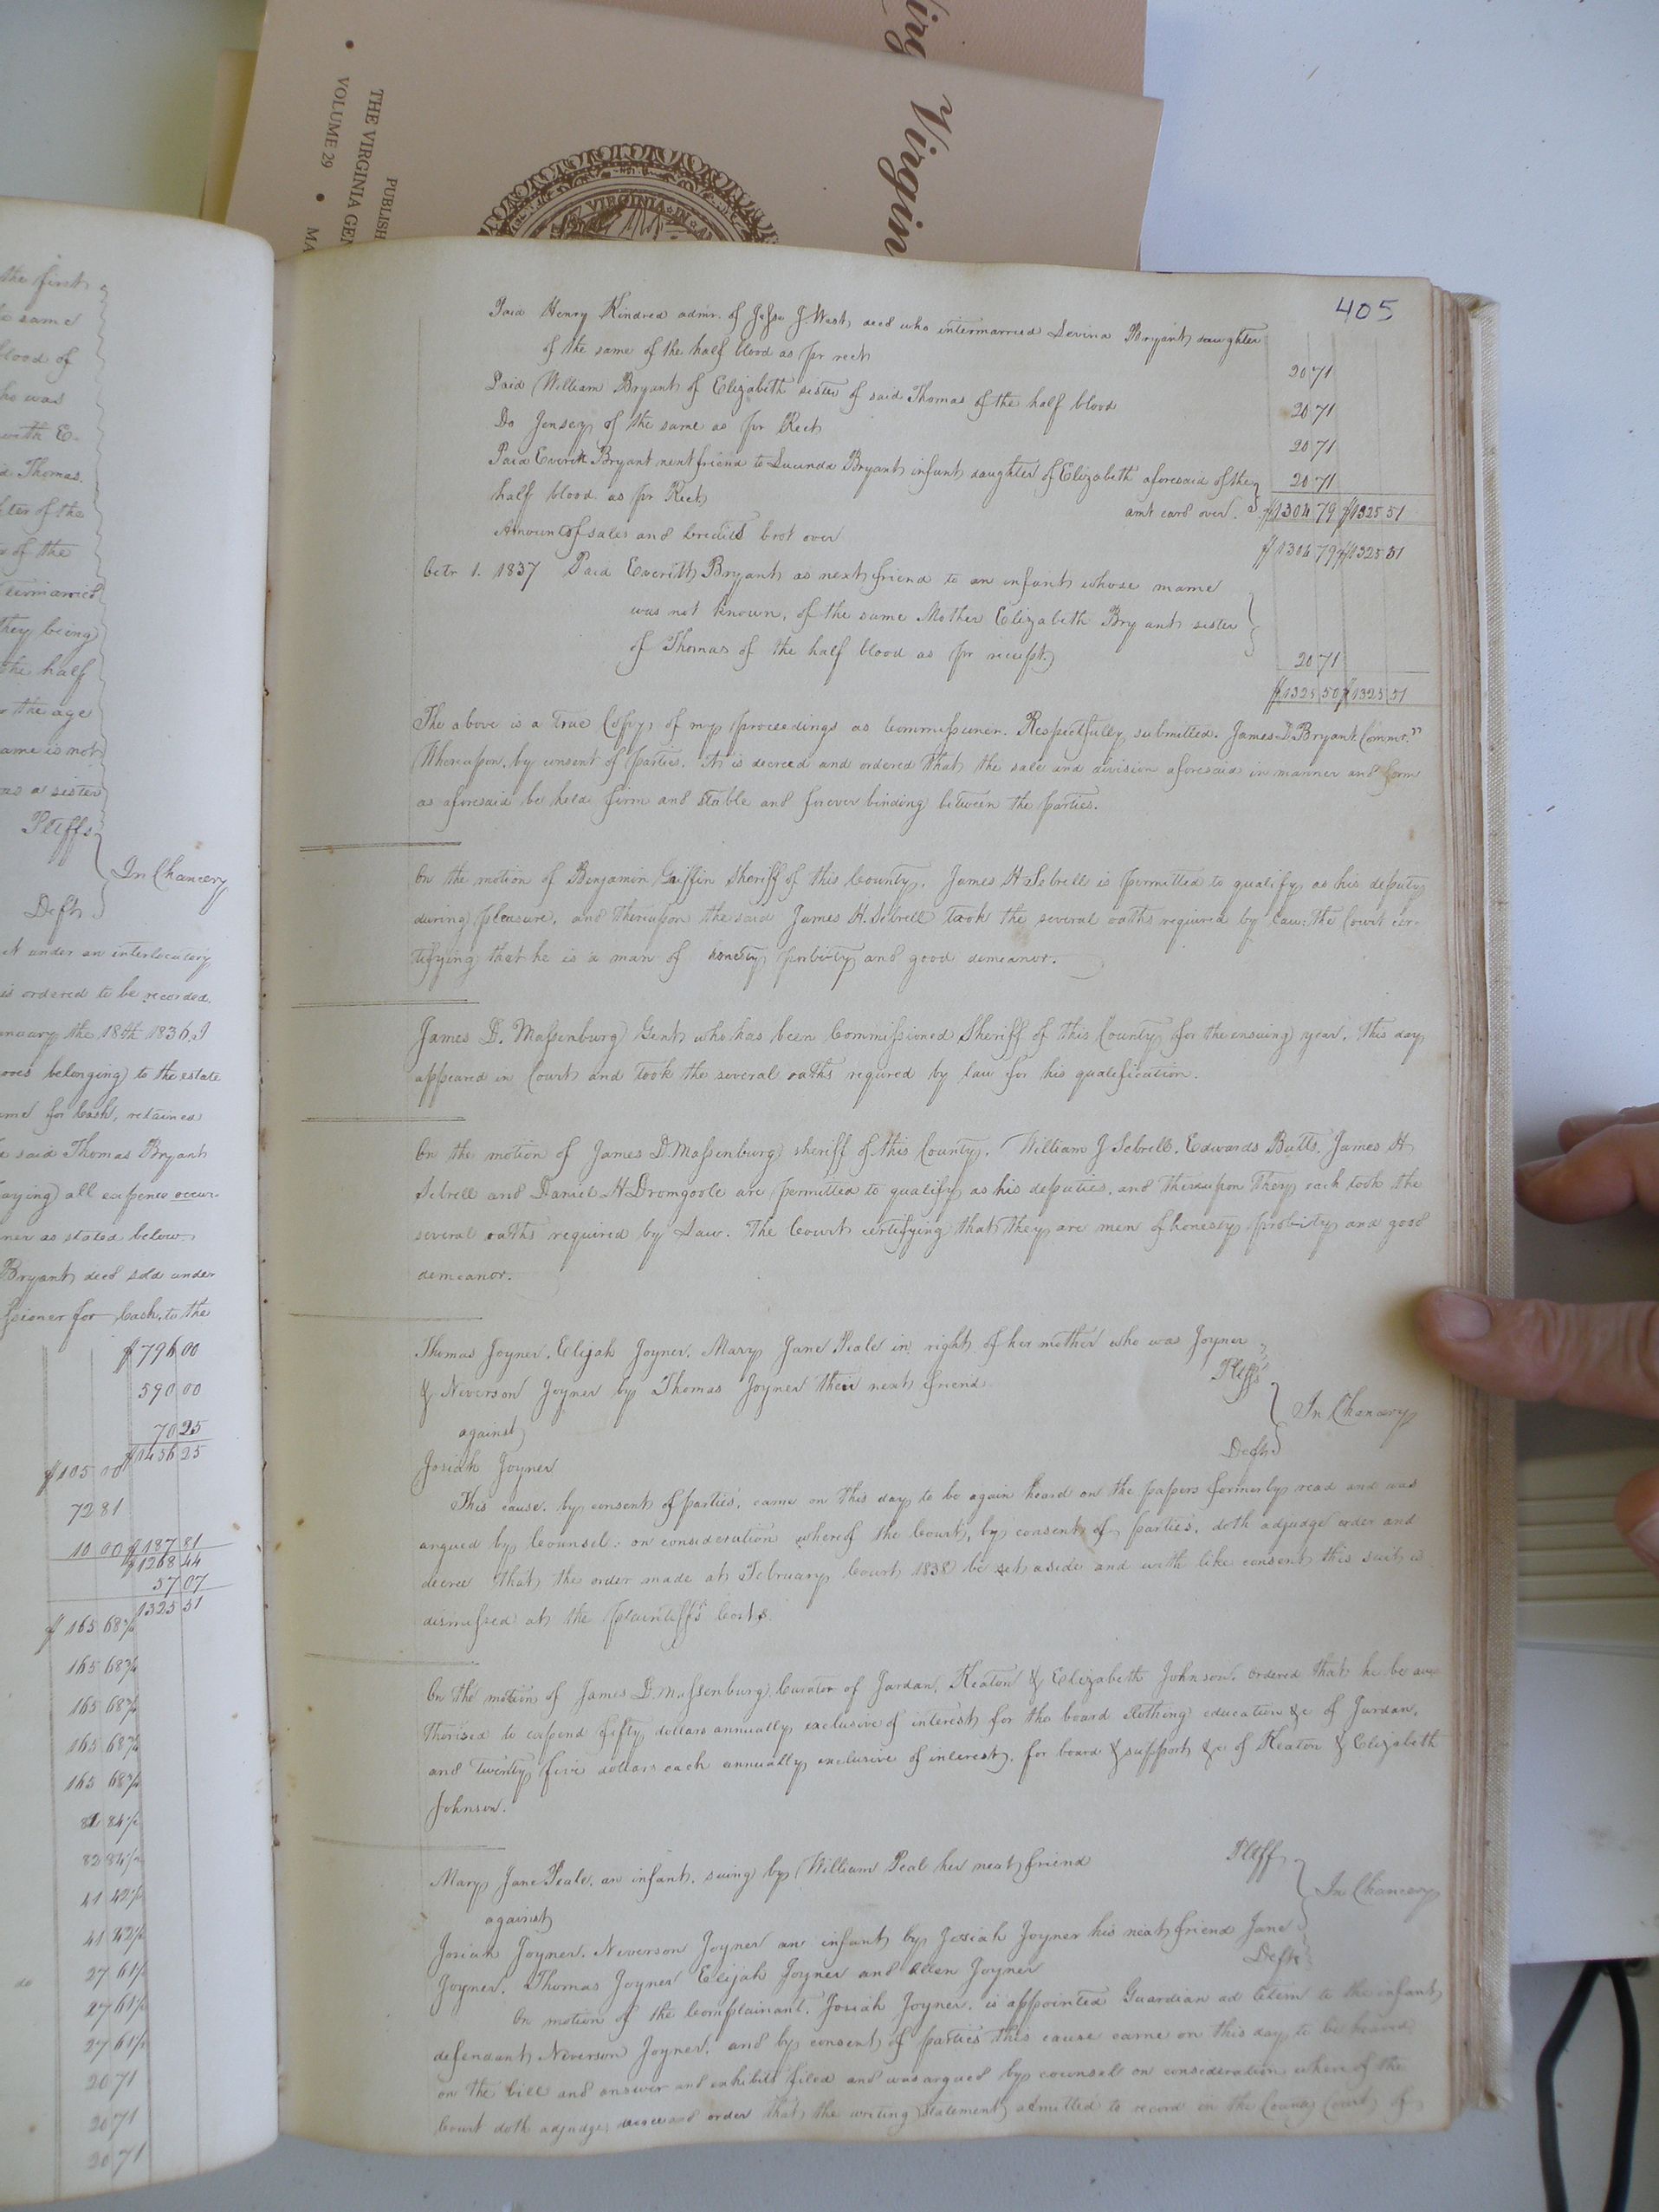 Virgin
PUBLISH
THE VIRGINIA GEN
VOLUME 29 • MA
VIRGINIA IN
the first
same
blood of
ho was
with E.
d Thomas.
ter of the
of the
termarried
they being
the half
the age
ame is not
as a sister
Pltffs
In Chancery
Deft
under an interlocutory
is ordered to be recorded.
nuary the 18th 1836. I
belonging to the estate
for Cash, retained
said Thomas Bryant
paying all expence occur-
ner as stated below
Bryant decd sold under
ssioner for Cash, to the
$796 00
590 00
70 25
$1456 25
$105 00
72 81
10 00 $187 81
$1268 44
57 07
1325 51
$165 68¾
165 68¾
165 68¾
165 68¾
165 68¾
82 84½
82 84½
41 42½
41 42½
do 27 61½
27 61½
27 61½
20 71
20 71
20 71
405
Paid Henry Kindred admr. of Jesse J. West, decd who intermarried Levina Bryant daughter
of the same of the half blood as pr rect 20 71
Paid William Bryant of Elizabeth sister of said Thomas of the half blood 20 71
Do Jensey of the same as pr Rect 20 71
Paid Everett Bryant next friend to Lucinda Bryant infant daughter of Elizabeth aforesaid of the 20 71
half blood as pr Rect amt card over. $1304 79 $1325 51
Amount of sales and credits brot over $1304 79 $1325 51
Octr 1. 1837 Paid Everitt Bryant as next friend to an infant whose name
was not known, of the same Mother Elizabeth Bryant sister
of Thomas of the half blood as pr receipt. 20 71
$1325 50 $1325 51
The above is a true Copy, of my proceedings as Commissioner. Respectfully submitted. James D. Bryant Commr."
Whereupon, by consent of parties. It is decreed and ordered that the sale and division aforesaid in manner and form
as aforesaid be held firm and stable and forever binding between the parties.
On the motion of Benjamin Griffin Sheriff of this County. James H. Sebrell is permitted to qualify as his deputy
during pleasure, and thereupon the said James H. Sebrell took the several oaths required by Law: the Court cer-
tifying that he is a man of honesty probity and good demeanor.
James D. Massenburg Gent who has been Commissioned Sheriff of this County for the ensuing year. This day
appeared in Court and took the several oaths required by law for his qualification.
On the motion of James D. Massenburg sheriff of this County. William J Sebrell. Edwards Butts. James H
Sebrell and Daniel H Dromgoole are permitted to qualify as his deputies, and thereupon they each took the
several oaths required by Law. The Court certifying that they are men of honesty probity and good
demeanor.
Thomas Joyner. Elijah Joyner. Mary Jane Peale in right of her mother who was Joyner
& Neverson Joyner by Thomas Joyner their next friend Pltffs
against In Chancery
Josiah Joyner Deft
This cause, by consent of parties, came on this day to be again heard on the papers formerly read and was
argued by Counsel: on consideration whereof the Court, by consent of parties, doth adjudge order and
decree that the order made at February Court 1838 be set aside and with like consent this suit is
dismissed at the plaintiffs Costs.
On the motion of James D. Massenburg, Curator of Jordan, Keaton & Elizabeth Johnson. ordered that he be au-
thorised to expend fifty dollars annually exclusive of interest for the board clothing education &c of Jordan.
and twenty five dollars each annually exclusive of interest, for board & support &c of Keaton & Elizabeth
Johnson.
Mary Jane Peale, an infant, suing by William Peal her next friend Pltff
against In Chancery
Josiah Joyner, Neverson Joyner an infant by Josiah Joyner his next friend Jane
Joyner, Thomas Joyner Elijah Joyner and Allen Joyner Defts
On motion of the Complainant, Josiah Joyner, is appointed Guardian ad litem to the infant
defendant Neverson Joyner, and by consent of parties this cause came on this day to be heard
on the bill and answer and exhibits filed and was argued by counsel on consideration where of the
Court doth adjudge, decree and order that the writing statement admitted to record in the County Court of